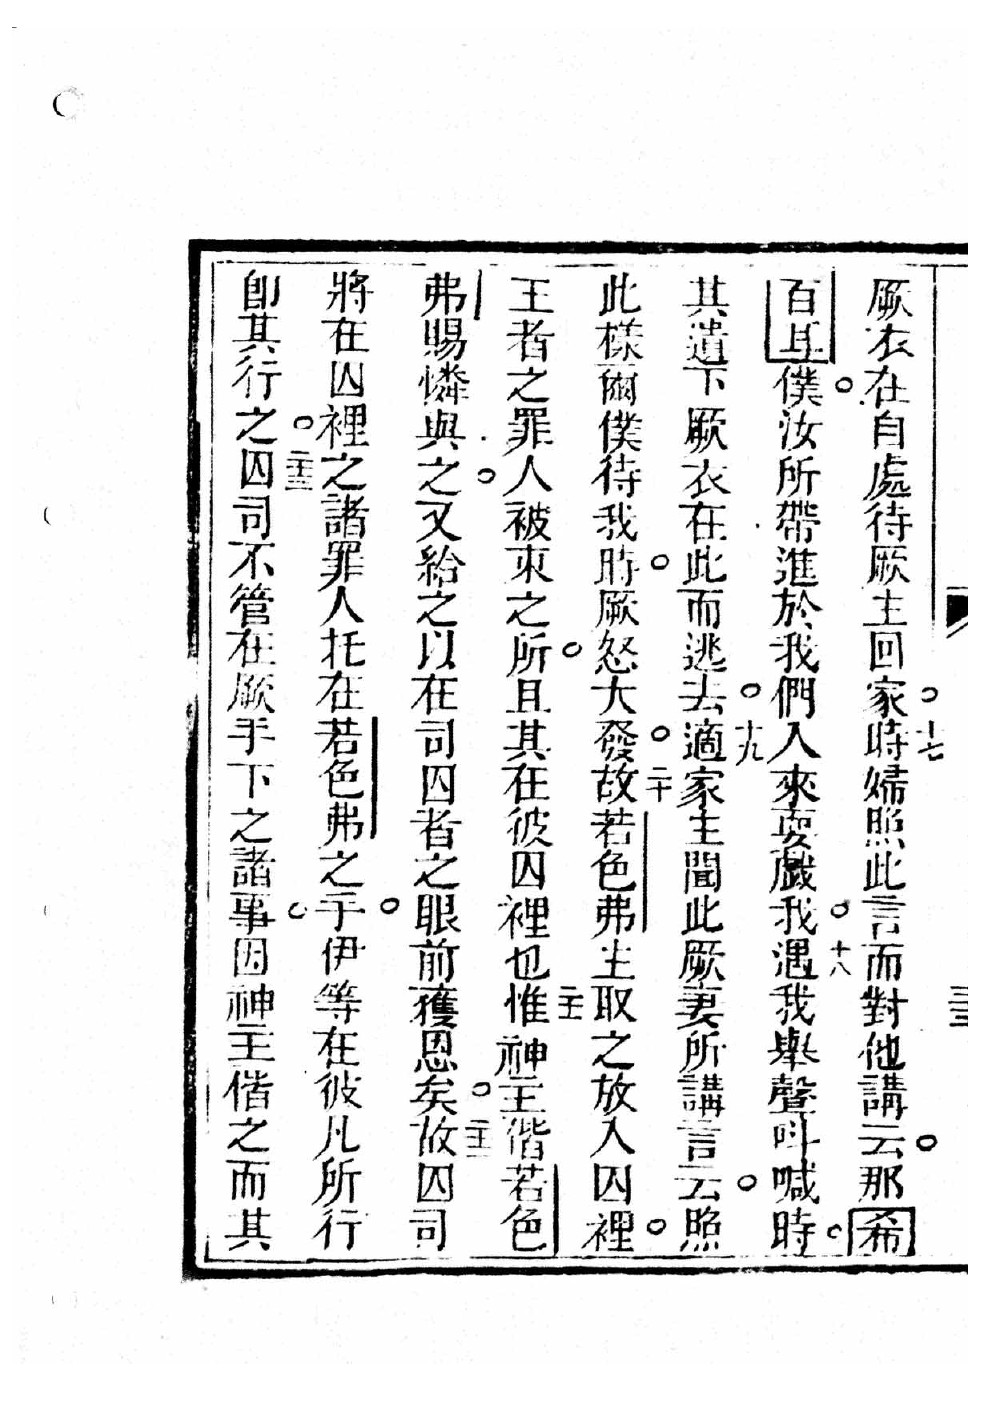 厥衣在自處待厥主回家○十七時婦照此言而對他講云○那希
百耳僕○汝所帶進於我們入來耍戲我○十八遇我舉聲呌喊時○
其遺下厥衣在此而逃去○十九適家主聞此厥妻所講言云○照
此樣爾僕待我時○厥怒大發○二十故若色弗主取之放入囚裡○
王者之罪人被束之所○且其在彼囚裡也二十一惟神主偕若色
弗賜憐與之○又給之以在司囚者之眼前獲恩矣○二十二故囚司
將在囚裡之諸罪人托在若色弗之手○伊等在彼凡所行
卽其行之○二十三囚司不管在厥手下之諸事○因神主偕之而其
三三